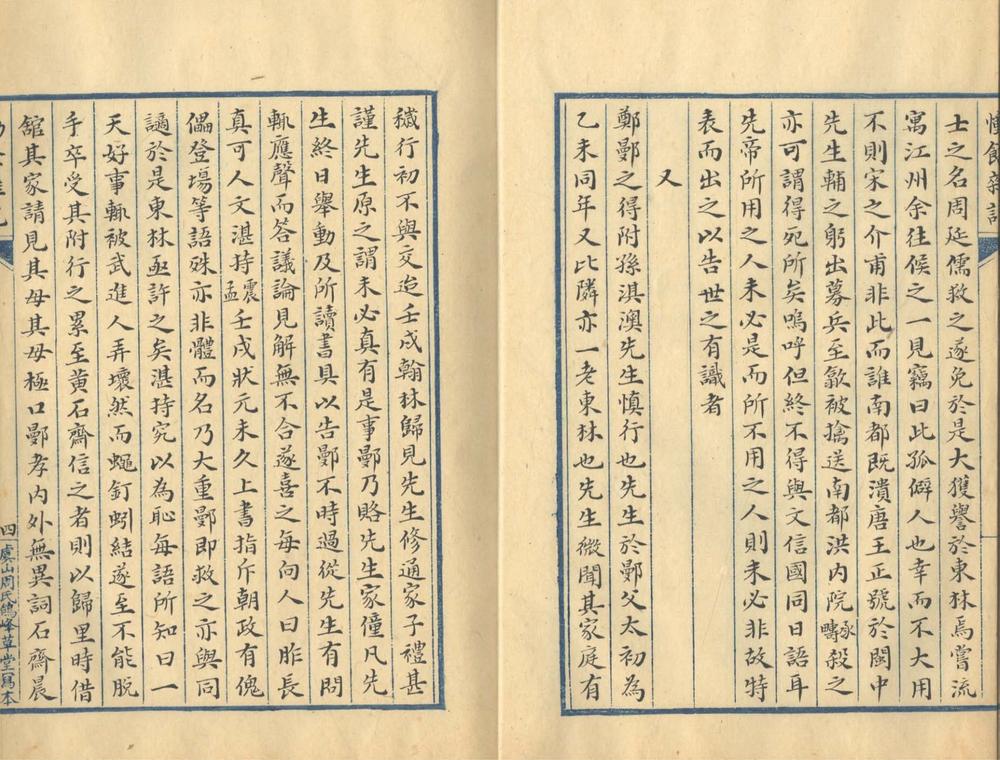 士之名周延儒救之遂免於是大獲譽於東林焉嘗流
寓江州余往候之一見竊曰此孤僻人也幸而不大用
不則宋之介甫非此而誰南都既潰唐王正號於閩中
先生輔之躬出募兵至歙被擒送南都洪内院承疇殺之
亦可謂得死所矣嗚呼但終不得與文信國同日語耳
先帝所用之人未必是而所不用之人則未必非故特
表而出之以告世之有識者
又
鄭鄤之得附孫淇澳先生慎行也先生於鄤父太初為
乙未同年又比隣亦一老東林也先生微聞其家庭有
穢行初不與交迨壬戌翰林歸見先生修通家子禮甚
謹先生原之謂未必真有是事鄤乃賂先生家僮凡先
生終日舉動及所讀書具以告鄤不時過從先生有問
輒應聲而答議論見解無不合遂喜之每向人曰昨長
真可人文湛持震孟壬戌狀元未久上書指斥朝政有傀
儡登場等語殊亦非體而名乃大重鄤即救之亦與同
謫於是東林亟許之矣湛持究以為恥每語所知曰一
天好事輒被武進人弄壞然而蠅釘蚓結遂至不能脱
手卒受其附行之累至黄石齋信之者則以歸里時借
舘其家請見其母其母極口鄤孝内外無異詞石齋晨
四
虞山周氏鴿峰草堂寫本